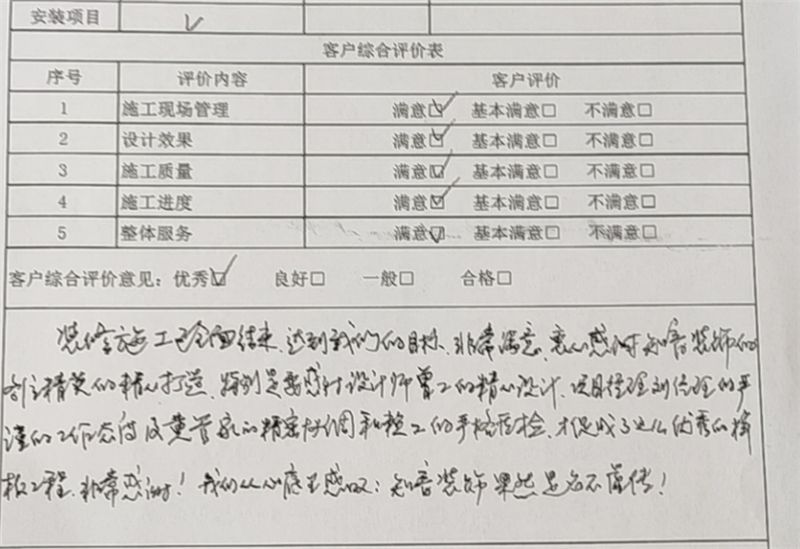 安装项目 √
客户综合评价表
序号 评价内容 客户评价
1 施工现场管理 满意☑ 基本满意□ 不满意□
2 设计效果 满意☑ 基本满意□ 不满意□
3 施工质量 满意☑ 基本满意□ 不满意□
4 施工进度 满意☑ 基本满意□ 不满意□
5 整体服务 满意☑ 基本满意□ 不满意□
客户综合评价意见：优秀☑ 良好□ 一般□ 合格□
装修施工已全面结束，达到我们的目标，非常满意，衷心感谢知音装饰的
各位精英的精心打造，特别是要感谢设计师曾工的精心设计，项目经理刘经理的严
谨的工作态度及黄管家的精密协调和 工的严格质检，才促成了这么优秀的样
板工程，非常感谢！我们从心底里感叹：知音装饰果然是名不虚传！